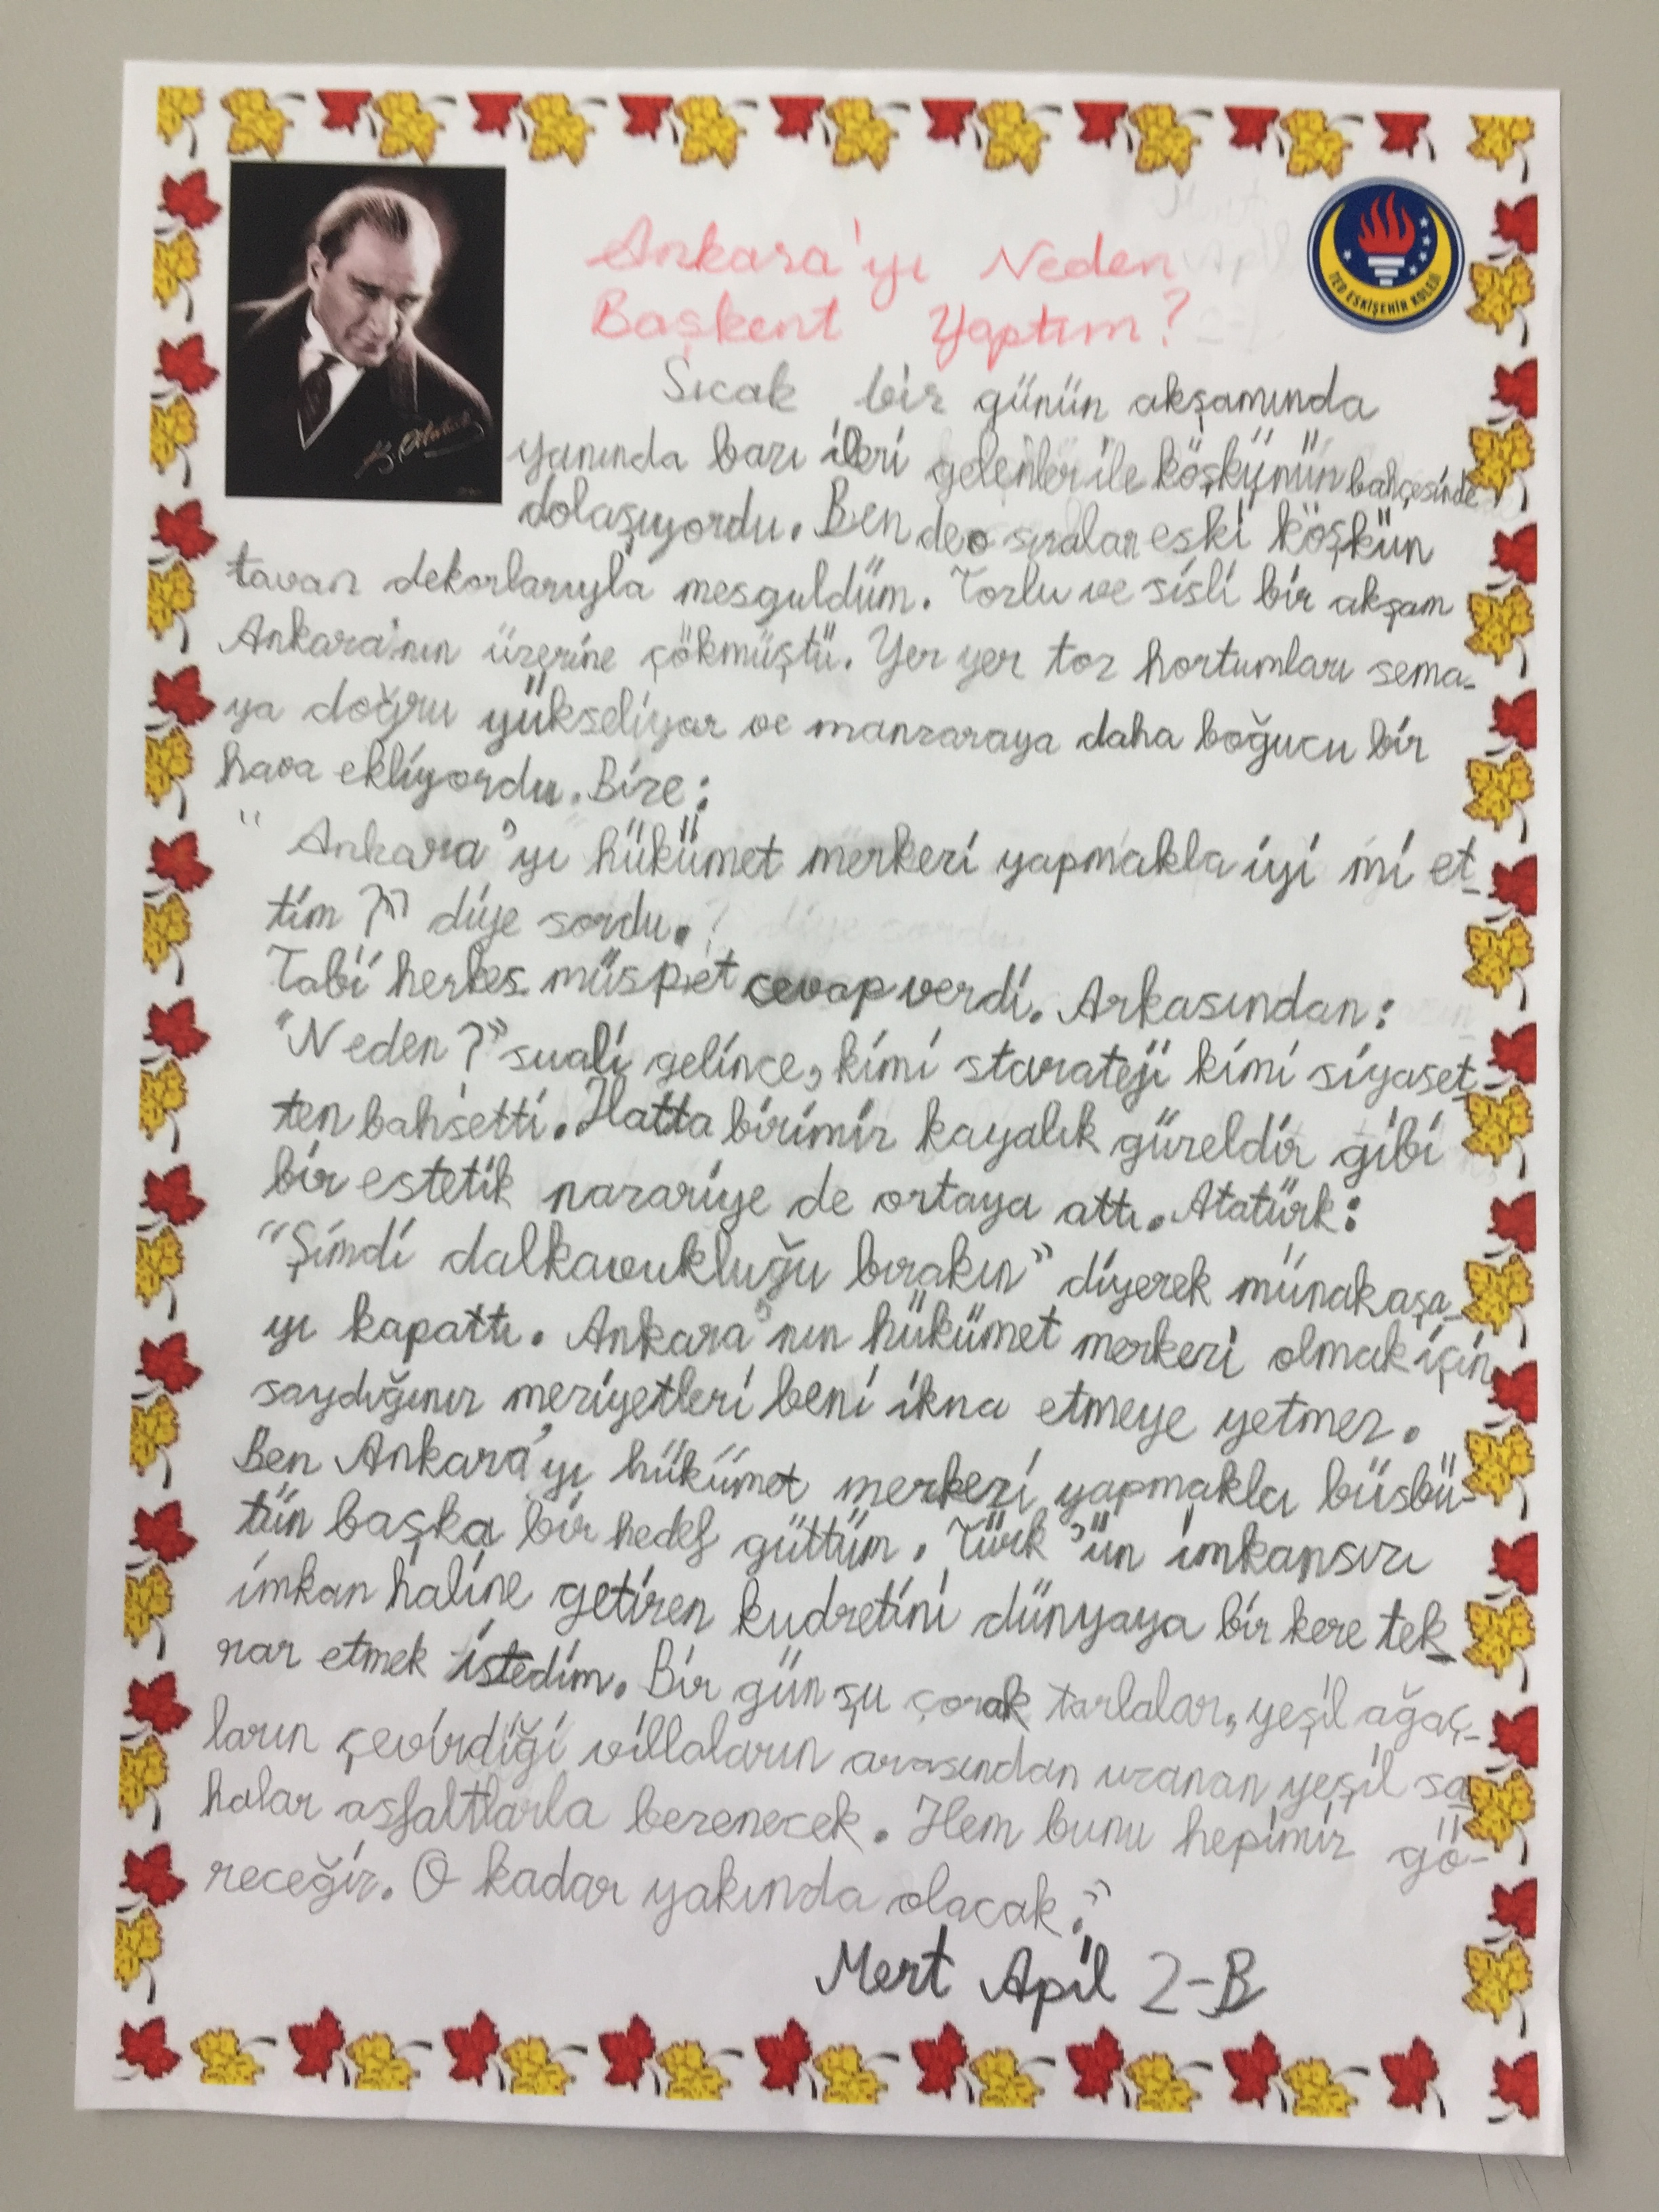 Ankara'yı Neden
Başkent Yaptım?
TED ESKİŞEHİR KOLEJİ
K. Atatürk
Sıcak bir günün akşamında
yanında bazı ileri gelenler ile köşkünün bahçesinde
dolaşıyordu. Ben de o sıralar eski köşkün
tavan dekorlarıyla mesguldüm. Tozlu ve sisli bir akşam
Ankara'nın üzerine çökmüştü. Yer yer toz hortumları sema-
ya doğru yükseliyor ve manzaraya daha boğucu bir
hava ekliyordu. Bize:
" Ankara'yı hükümet merkezi yapmakla iyi mi et-
tim?" diye sordu.
Tabi herkes müspet cevap verdi. Arkasından:
"Neden?" suali gelince, kimi starateji kimi siyaset-
ten bahsetti. Hatta birimiz kayalık güzeldir gibi
bir estetik nazariye de ortaya attı. Atatürk:
"Şimdi dalkavukluğu bırakın" diyerek münakaşa-
yı kapattı. Ankara'nın hükümet merkezi olmak için
saydığınız meziyetleri beni ikna etmeye yetmez.
Ben Ankara'yı hükümet merkezi yapmakla büsbü-
tün başka bir hedef güttüm. Türk'ün imkansızı
imkan haline getiren kudretini dünyaya bir kere tek-
rar etmek istedim. Bir gün şu çorak tarlalar, yeşil ağaç-
ların çevirdiği villaların arasından uzanan yeşil sa-
halar asfaltlarla bezenecek. Hem bunu hepimiz gö-
receğiz. O kadar yakında olacak."
Mert Apil 2-B